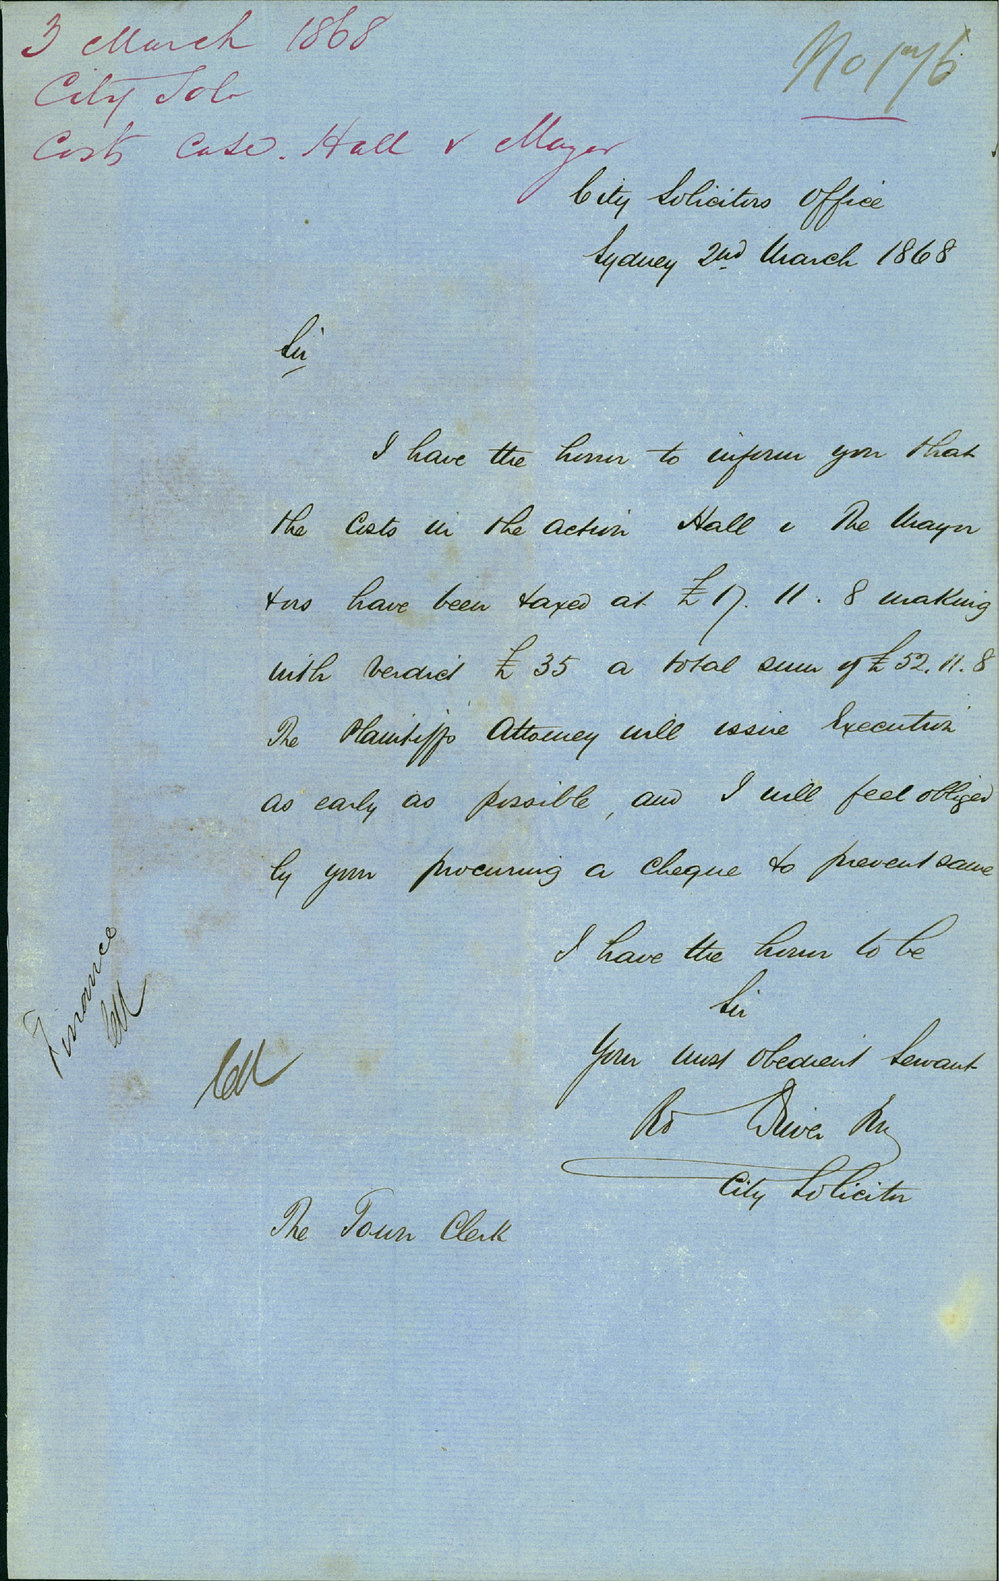 3 March 1868
City Solr
Costs Case. Hall v Mayor
No 176
City Solicitors Office
Sydney 2nd March 1868
Sir
I have the honor to inform you that
the Costs in the action Hall v The Mayor
&ors have been taxed at £17. 11. 8 making
with Verdict £35 a total sum of £52.11.8
The Plaintiffs Attorney will issue Execution
as early as possible, and I will feel obliged
by your procuring a Cheque to prevent same
I have the honor to be
Sir
Your most obedient Servant
Rd Driver Jnr
City Solicitor
Finance
The Town Clerk